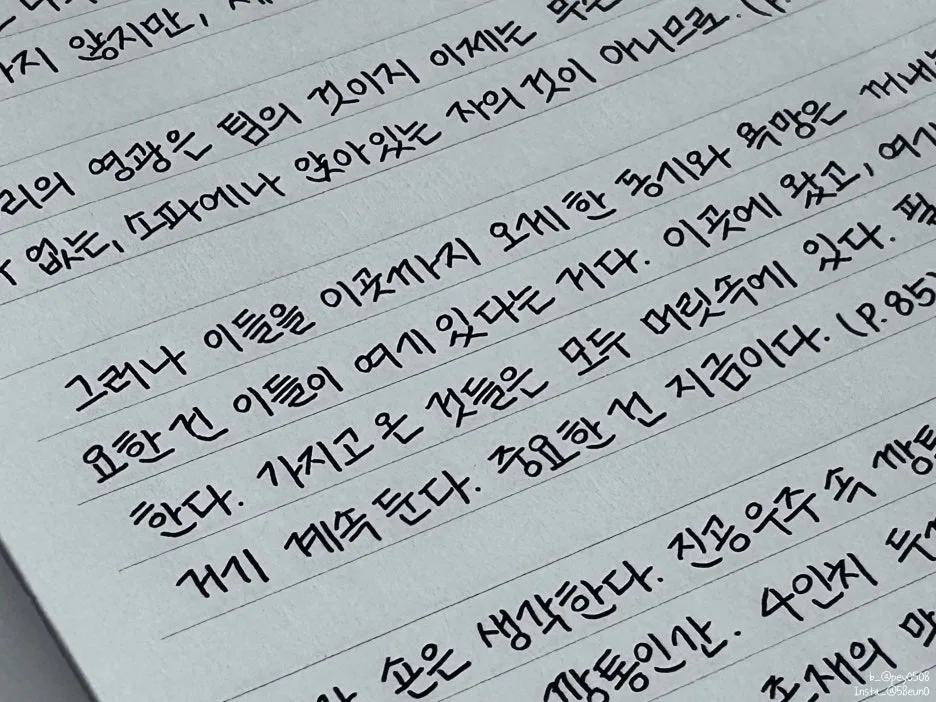 않지만,
리의 영광은 팀의 것이지 이제는
없는, 소파에나 앉아있는 자의 것이 아니므로. (p.
그러나 이들을 이곳까지 오게 한 동기와 욕망은 꺼내
요한 건 이들이 여기 있다는 거다. 이곳에 왔고, 여기
한다. 가지고 온 것들은 모두 머릿속에 있다. 필
거기 계속 둔다. 중요한 건 지금이다. (p.85)
숀은 생각한다. 진공우주 속 깡통
깡통인간. 4인치 두께
존재의 막
b_@pey0508
Insta_@58eun0